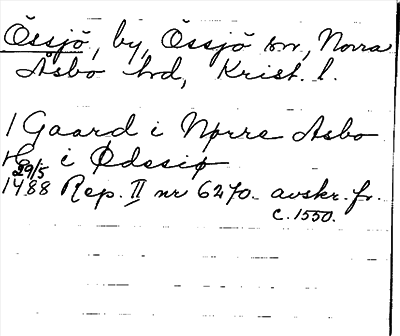 Össjö, by, Össjö sn, Norra
Åsbo hd, Krist. l.
1 Gaard i Nørre Asbo
H. i Ødessiø
29/5
1488 Rep. II nr 6270. avskr. fr.
c. 1550.